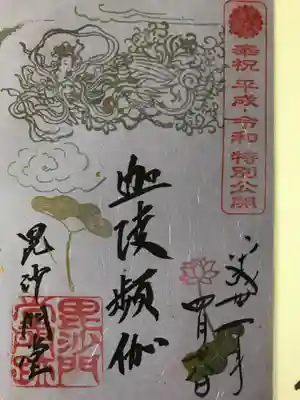 奉祝 平成・令和 特別公開
平成卅一年
四月
迦陵頻伽
毘沙門堂
毘沙門